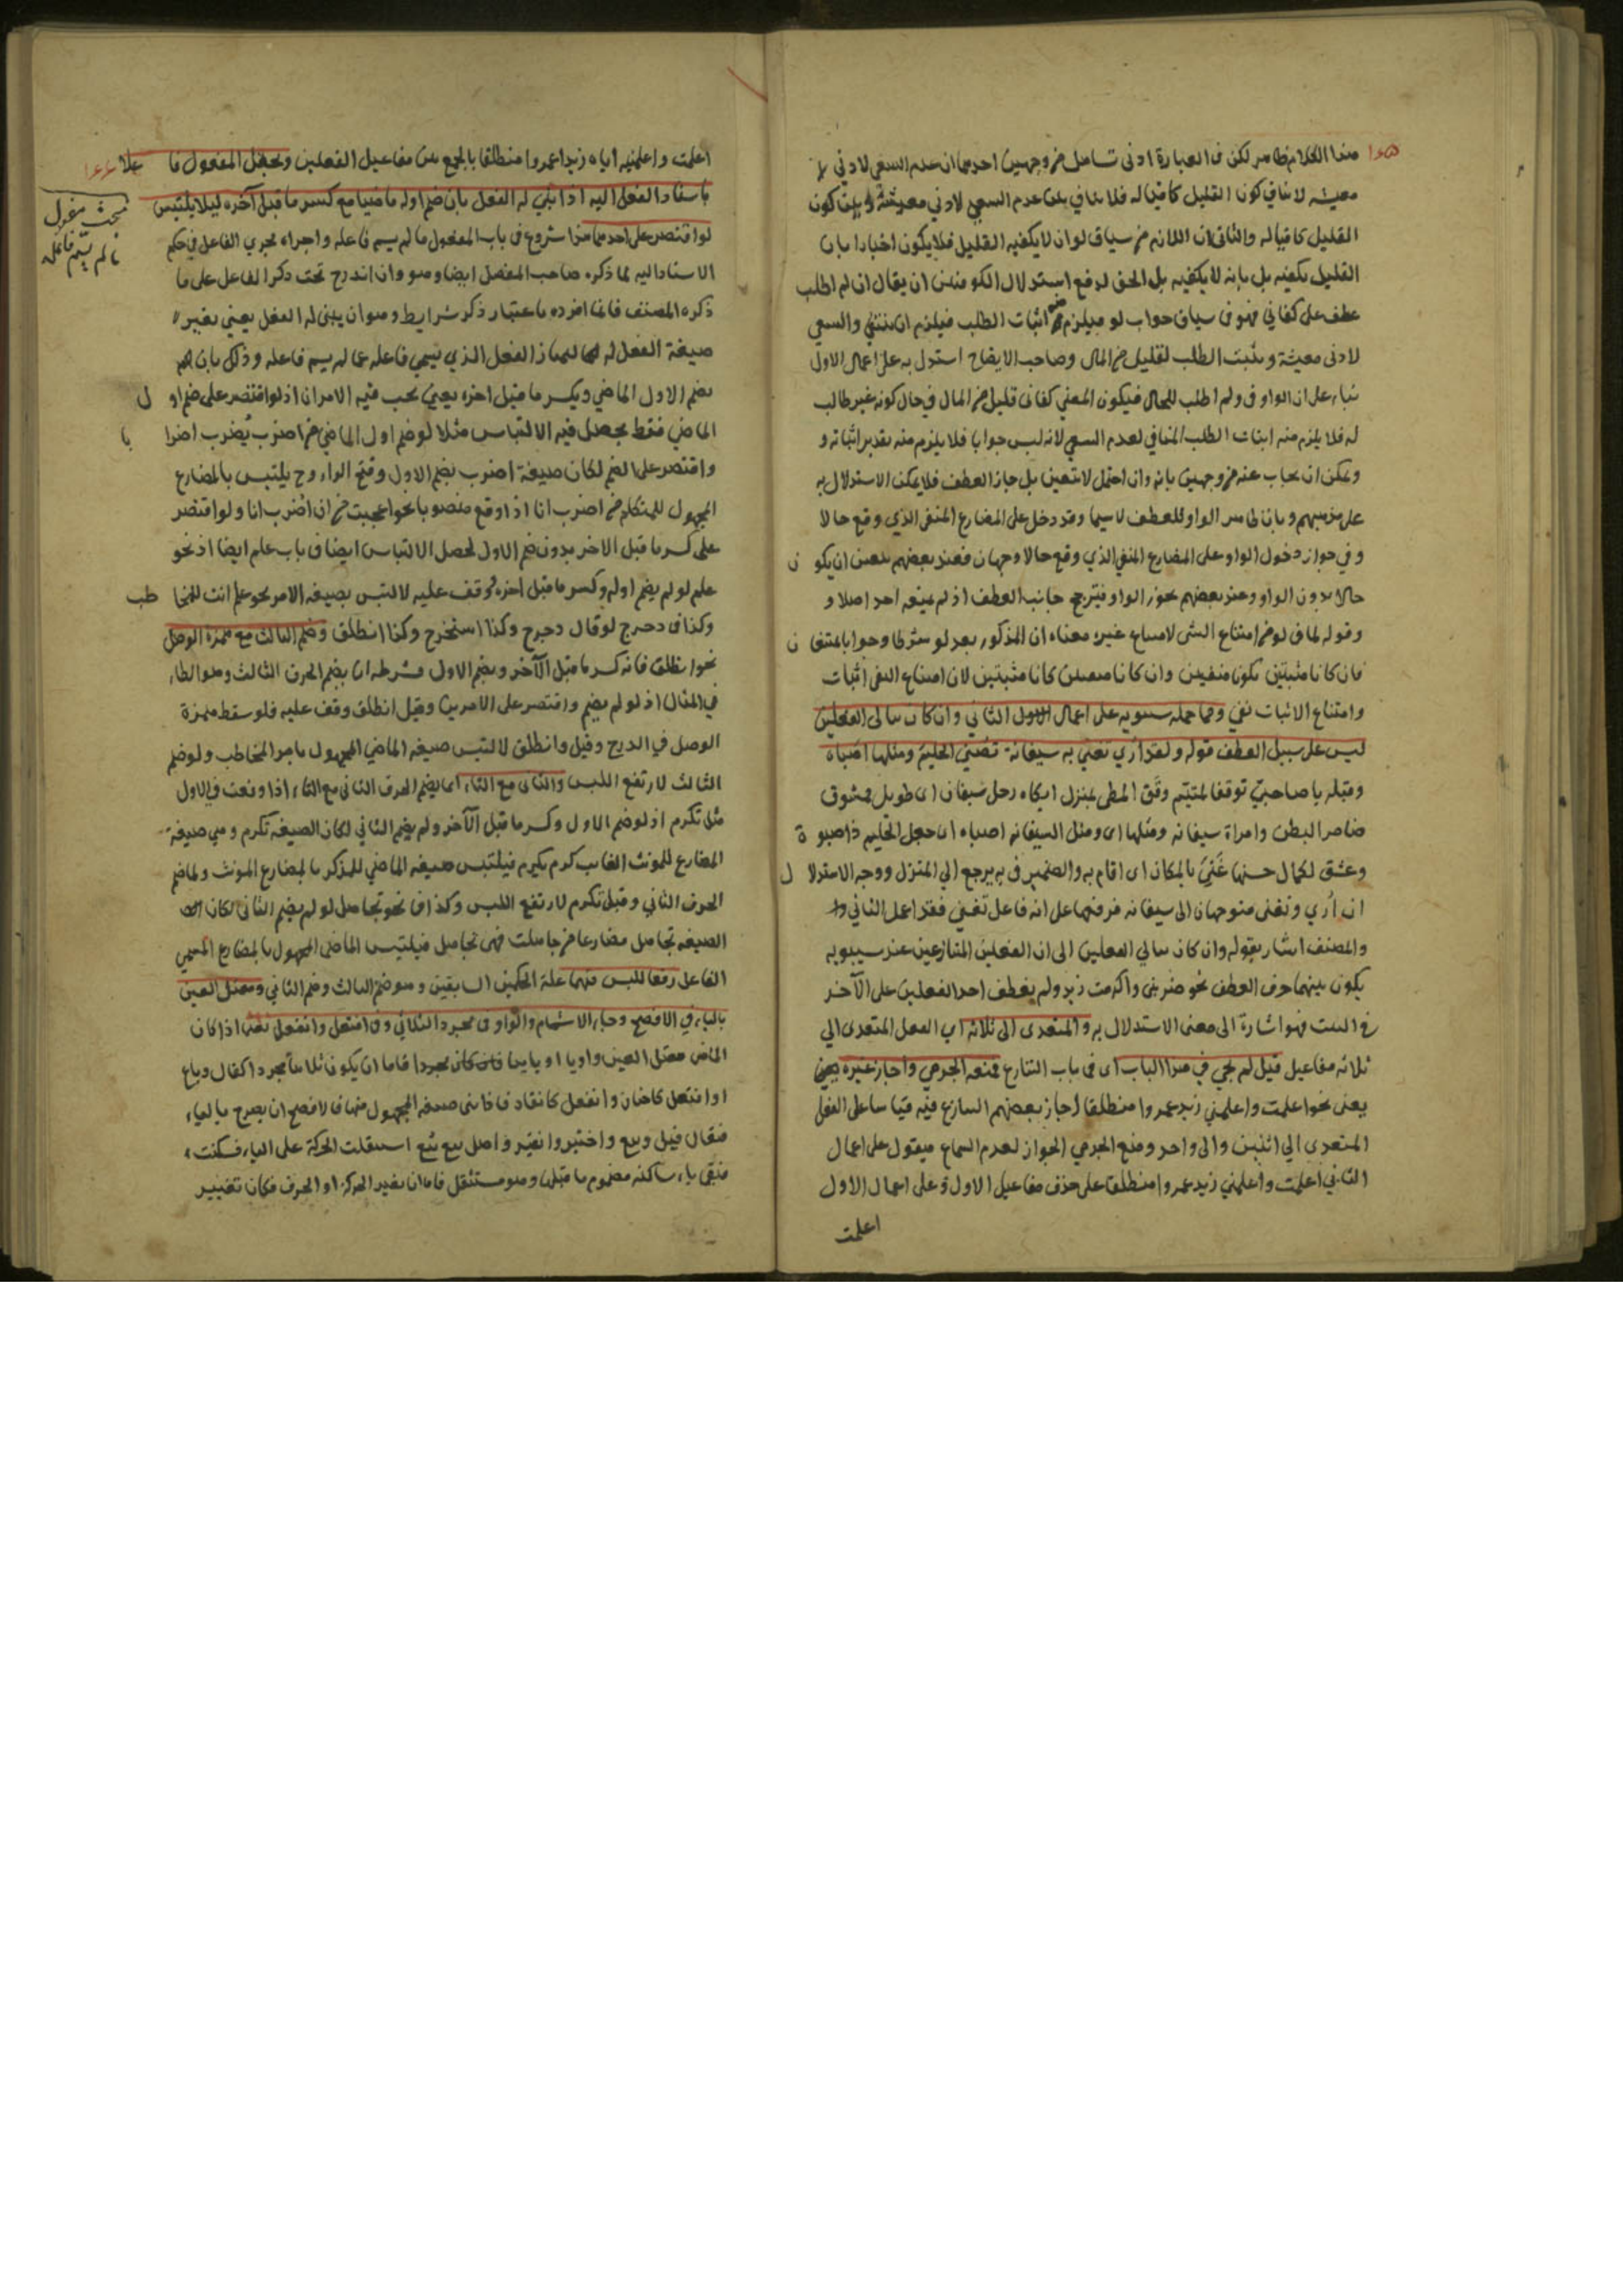 هذا الكلام ظاهر لكن في العبارة ادنى تساهل من وجهين احدهما ان عدم السعي لادنى
معيشة لا ينافي كون القليل كافيا له فلا ينافي بين عدم السعي لادنى معيشة وبين كون
القليل كافيا له والثاني ان اللازم من سياق لو ان لا يكفيه القليل فلا يكون اخبارا بان
القليل يكفيه بل بانه لا يكفيه بل الحق لدفع استدلال الكوفيين ان يقال ان لم اطلب
عطف على كفاني فهو في سياق جواب لو فيلزم اثبات الطلب فيلزم ان ينتفي والسعي
لادنى معيشة ويثبت الطلب لقليل من المال وصاحب الايضاح استدل به على اعمال الاول
بناء على ان الواو في ولم اطلب للحال فيكون المعنى كفاني قليل من المال في حال كونه غير طالب
له فلا يلزم منه اثبات الطلب المنافي لعدم السعي لانه ليس جوابا فلا يلزم منه تقدير اثباته و
ويمكن ان يجاب عنه من وجهين بانه وان احتمل لا يتعين بل جاز العطف فلا يمكن الاستدلال به
على مذهبهم وبان ظاهر الواو للعطف لاسيما وقد دخل على المضارع المنفي الذي وقع حالا
وفي جواز دخول الواو على المضارع المنفي الذي وقع حالا وجهان فعند بعضهم يتعين ان يكون
حالا بدون الواو وعند بعضهم يجوز الواو فيترجح جانب العطف اذ لم يمنعه احد اصلا و
وقوله لما في لو من امتناع الشي لامتناع غيره معناه ان المذكور بعد لو شرطا وجوابا
فان كانا مثبتين يكون منفيين وان كانا منفيين كانا مثبتين لان امتناع النفي اثبات
وامتناع الاثبات نفي ومما حمله سيبويه على اعمال الاول الثاني وان كان تنافى الفعلين
ليس على سبيل العطف قوله ولقد ارى تغنى به سيفانة تصبي الحليم ومثلها اصباه
وقبله يا صاحبي توقفا لمتيم وقف المطي بمنزل ابكاه رجل سيفان اى طويل ممشوق
ضامر البطن وامراة سيفانة ومثلها اى ومثل السيفانة اصباه اى جعل الحليم ذا صبوة
وعشق لكمال حسنها غني بالمكان اى اقام به والضمير في به يرجع الى المنزل ووجه الاستدلال
ان ارى وتغنى متوجهان الى سيفانة فرفعها على انه فاعل تغنى فقد اعمل الثاني
والمصنف اشار بقوله وان كان تنافى الفعلين الى ان الفعلين المتنازعين عند سيبويه
يكون بينهما حرف العطف نحو ضربني واكرمت زيد ولم يعطف احد الفعلين على الآخر
في البيت فهو اشارة الى معنى الاستدلال به والمتعدى الى ثلاثة اى الفعل المتعدى الى
ثلاثة مفاعيل قيل لم يجي في هذا الباب اى في باب التنازع فمنعه الجرمي واجاز غيره
يعنى نحو اعلمت واعلمني زيد عمروا منطلقا اجاز بعضهم التنازع فيه قياسا على الفعل
المتعدى الى اثنين والى واحد ومنع الجرمي الجواز لعدم السماع فيقول على اعمال
الثاني اعلمت واعلمني زيد عمروا منطلقا على حذف مفاعيل الاول وعلى اعمال الاول
اعلمت
اعلمت واعلمنيه اياه زيدا عمروا منطلقا بالجمع بين مفاعيل الفعلين ويجعل المفعول فاعلا
باسناد الفعل اليه اذا بني له الفعل بان ضم اوله ماضيا مع كسر ما قبل آخره ليلا يلتبس
لو اقتصر على احدهما هذا شروع في باب المفعول ما لم يسم فاعله واجراه مجرى الفاعل في حكم
مبحث مفعول
ما لم يسم فاعله
الاسناد اليه لما ذكره صاحب المفصل ايضا وهو وان اندرج تحت ذكر الفاعل على ما
ذكره المصنف فانما افرده باعتبار ذكر شرايط وهو ان يبنى له الفعل يعني بغير
صيغة الفعل له ليمتاز الفعل الذي يسمى فاعله عما لم يسم فاعله وذلك بان
يضم الاول الماضي ويكسر ما قبل اخره يعني يجب فيه الامران اذ لو اقتصر على ضم اول
الماضي فقط يحصل فيه الالتباس مثلا لو ضم اول الماضي من اضرب يضرب اضرابا
واقتصر على الضم لكان صيغة اضرب بضم الاول وفتح الراء وح يلتبس بالمضارع
المجهول للمتكلم من اضرب انا اذا وقع منصوبا نحو اعجبت من ان اضرب انا ولو اقتصر
على كسر ما قبل الاخر بدون ضم الاول لحصل الالتباس ايضا في باب علم ايضا اذ نحو
علم لو لم يضم اوله وكسر ما قبل اخره ووقف عليه لالتبس بصيغة الامر نحو علم انت للمخاطب
وكذا في دحرج لو قال دحرج وكذا استخرج وكذا انطلق وضم الثالث مع همزة الوصل
نحو انطلق فانه كسر ما قبل الآخر وبضم الاول فشرطه ان يضم الحرف الثالث وهو الطاء
في المثال اذ لو لم يضم واقتصر على الامرين وقيل انطلق وقف عليه فلو سقط همزة
الوصل في الدرج وقيل وانطلق لالتبس صيغة الماضي المجهول بامر المخاطب ولو ضم
الثالث لارتفع اللبس والثاني مع التاء اى يضم الحرف الثاني مع التاء اذا وقعت في الاول
مثل تكرم اذ لو ضم الاول وكسر ما قبل الآخر ولم يضم الثاني لكان الصيغة تكرم وهي صيغة
المضارع للمونث الغايب كرم يكرم فيلتبس صيغة الماضي للمذكر بالمضارع المونث ولما ضم
الحرف الثاني وقيل تكرم لارتفع اللبس وكذا في نحو تجاهل لو لم يضم الثاني لكان
الصيغة تجاهل مضارعا من جاهلت فهي تجاهل فيلتبس الماضي المجهول بالمضارع المسمى
الفاعل رفعا للبس فيهما علة الحكمين السابقين وهو ضم الثالث وضم الثاني ومعتل العين
بالياء في الافصح وجاء الاشمام والواو في مجرد الثلاثي وفي افتعل وانفعل يعني اذا كان
الماضي معتل العين واويا او يائيا فاما ان يكون ثلاثيا مجردا كقال وباع
او افتعل كاختار وانفعل كانقاد فاذا بني صيغة المجهول منها فالافصح ان يصرح بالياء
فيقال قيل وبيع واختير وانقير واصل بيع بيع استثقلت الحركة على الياء فسكنت
فبقي ياء ساكنة مضموم ما قبلها وهو مستثقل فاما ان يغير الحركة او الحرف فكان تغيير